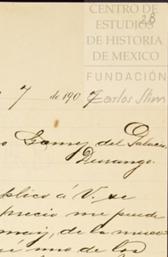 CENTRO DE
ESTUDIOS
DE HISTORIA
DE MEXICO
FUNDACIÓN
Carlos Slim
28
7 de 1907
Gomez del Palacio,
Durango.
plico á V. se
precio me puede
maiz, de la nueva
uno de los